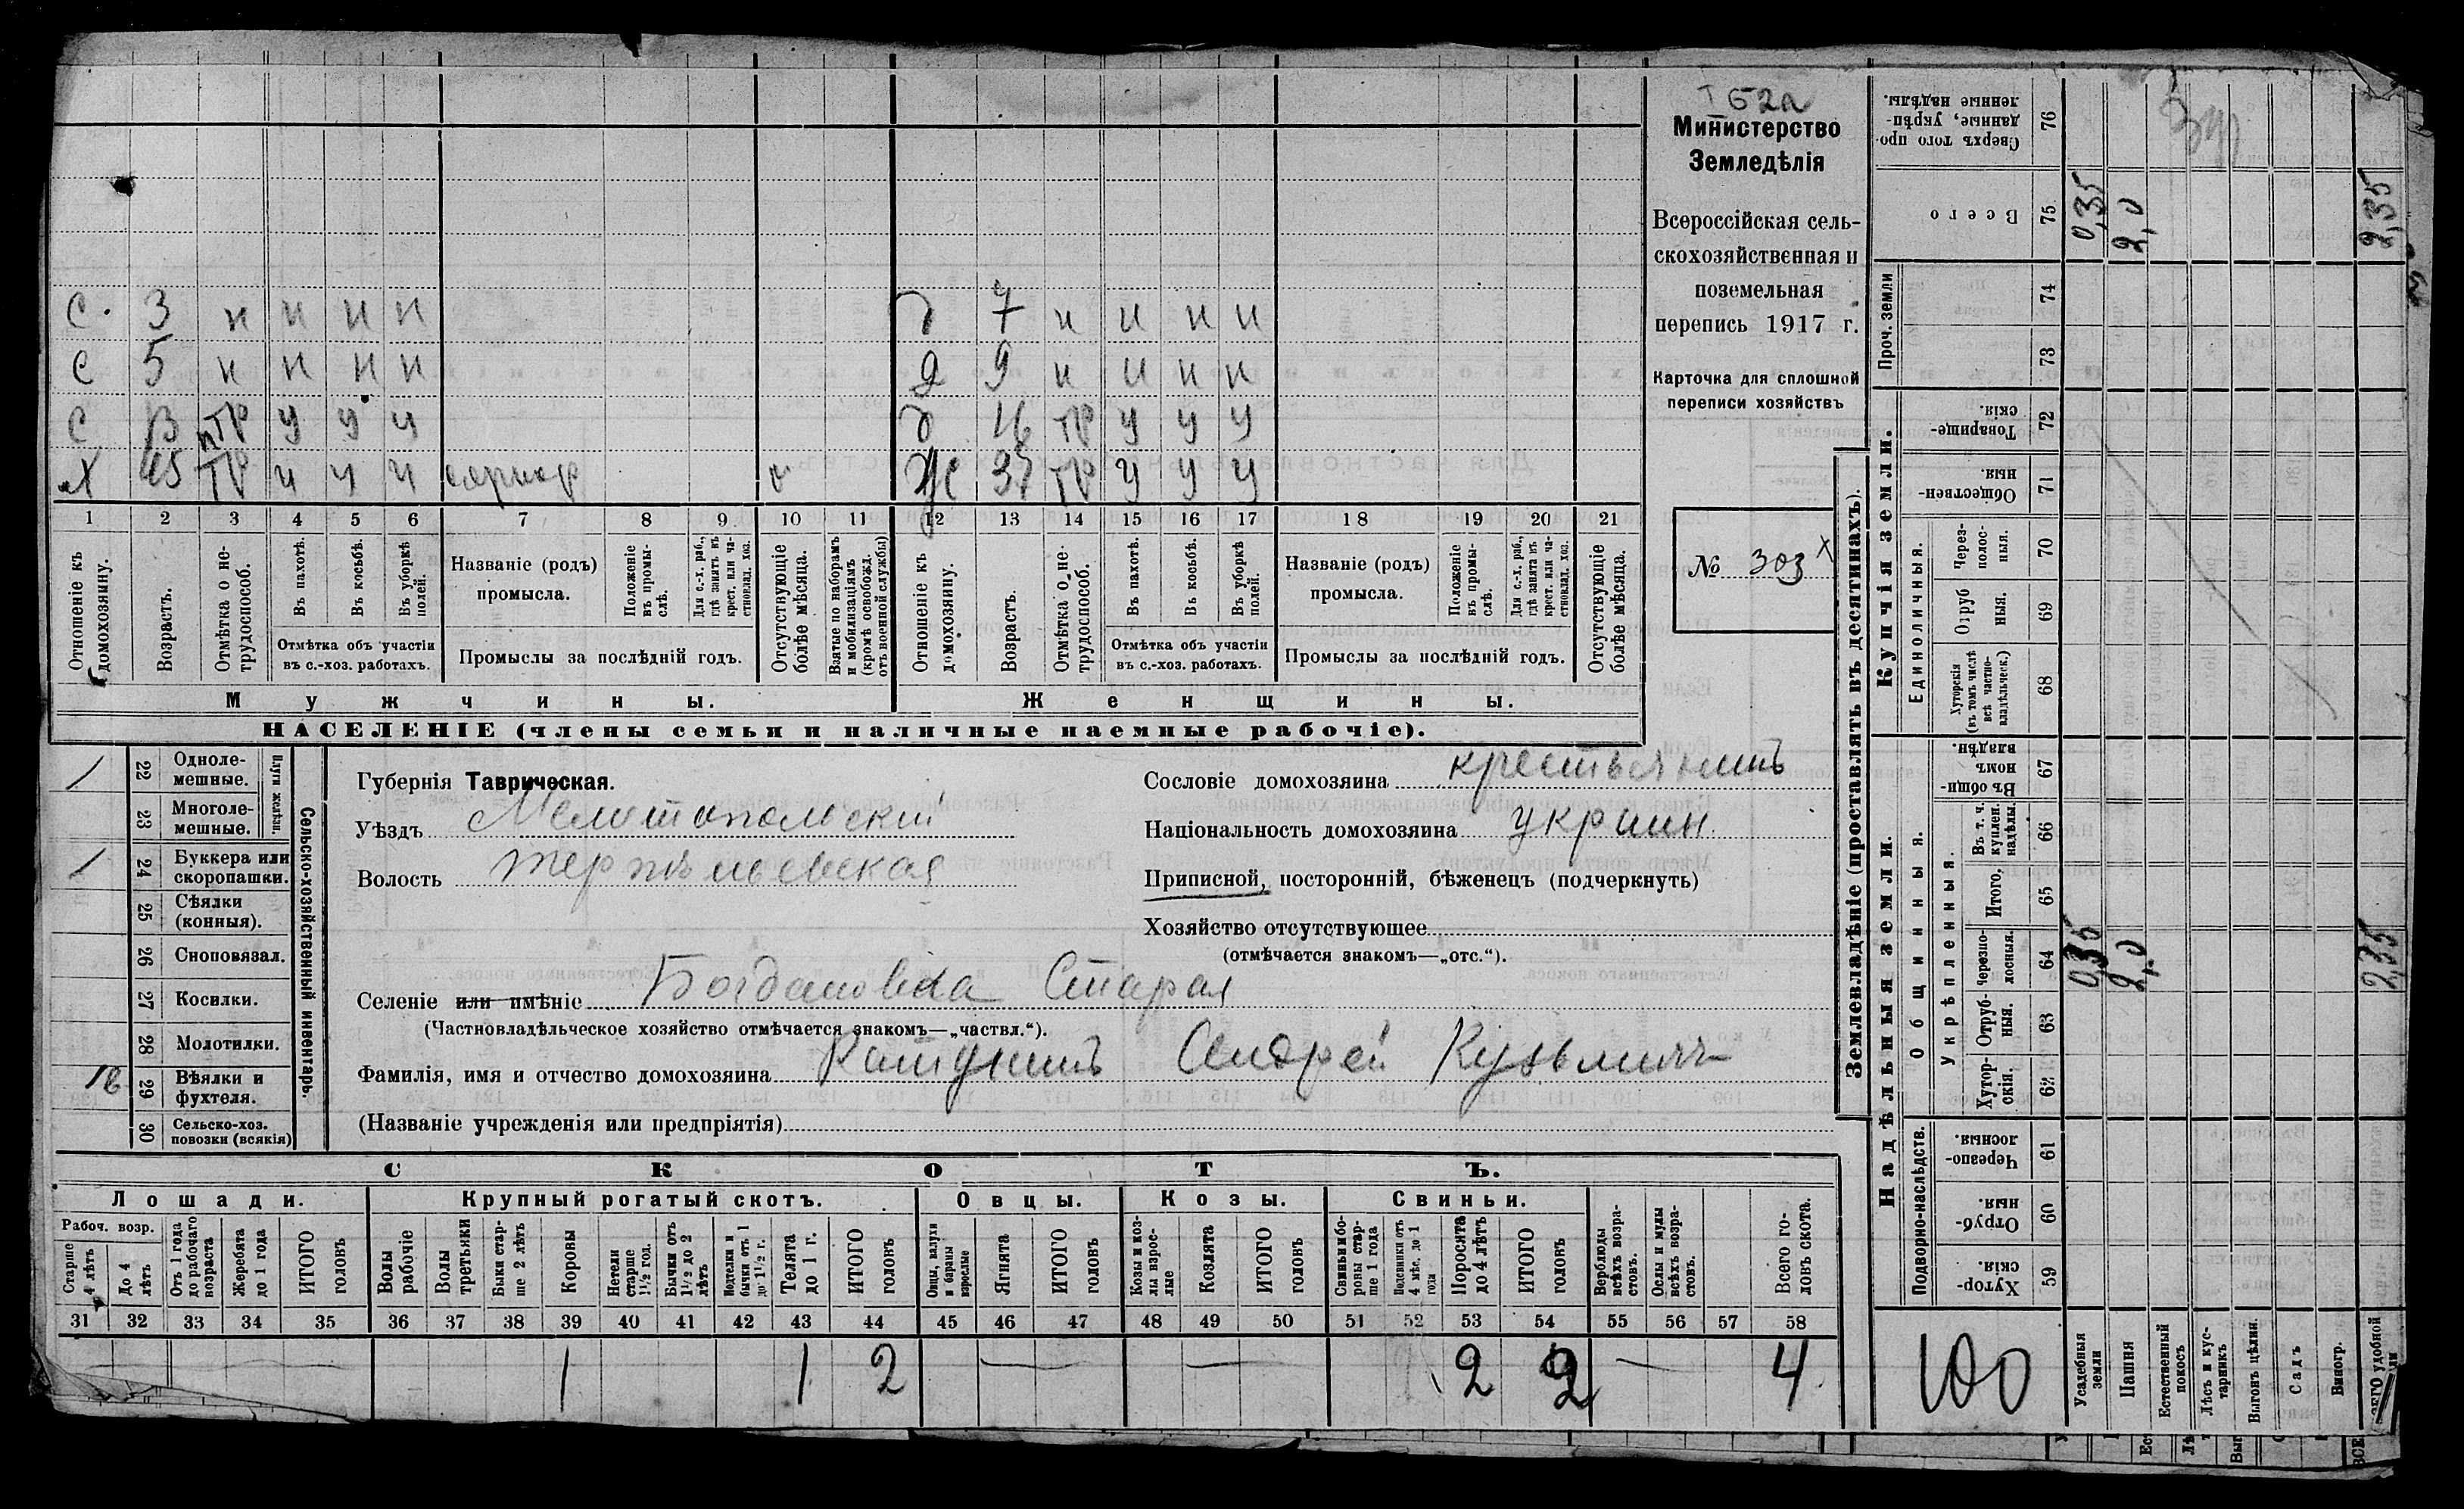 52а
Министерство
Земледѣлія
Всероссійская сель-
скохозяйственная и
поземельная
перепись 1917 г.
Карточка для сплошной
переписи хозяйствъ
№ 303 х
с. 3 н н н н
д 7 н н н н
с 5 н н н н
д 9 н н н н
с 13 птр ч ч ч
д 16 тр у у у
х 45 тр ч ч ч
ж 37 тр у у у
1 2 3 4 5 6 7 8 9 10 11 12 13 14 15 16 17 18 19 20 21
Отношеніе къ домохозяину.
Возрастъ.
Отмѣтка о не-трудоспособ.
Въ пахотѣ.
Въ косьбѣ.
Въ уборкѣ полей.
Отмѣтка объ участіи
въ с.-хоз. работахъ.
Названіе (родъ)
промысла.
Положеніе въ промы-слѣ.
Для с.-х. раб., гдѣ занятъ въ крест. или ча-стновлад. хоз.
Промыслы за послѣдній годъ.
Отсутствующіе болѣе мѣсяца.
Взятые по наборамъ и мобилизаціямъ (кромѣ освобожд. отъ военной службы)
Отношеніе къ домохозяину.
Возрастъ.
Отмѣтка о не-трудоспособ.
Въ пахотѣ.
Въ косьбѣ.
Въ уборкѣ полей.
Отмѣтка объ участіи
въ с.-хоз. работахъ.
Названіе (родъ)
промысла.
Положеніе въ промы-слѣ.
Для с.-х. раб., гдѣ занята въ крест. или ча-стновлад. хоз.
Промыслы за послѣдній годъ.
Отсутствующіе болѣе мѣсяца.
Мужчины.
Женщины.
НАСЕЛЕНІЕ (члены семьи и наличные наемные рабочіе).
Сельско-хозяйственный инвентарь.
Плуги желѣзн.
1 22 Одноле-мешные.
23 Многоле-мешные.
1 24 Буккера или скоропашки.
25 Сѣялки (конныя).
26 Сноповязал.
27 Косилки.
28 Молотилки.
29 Вѣялки и фухтеля.
30 Сельско-хоз. повозки (всякія)
Губернія Таврическая.
Уѣздъ Мелитопольскій
Волость Терпѣньевская
Сословіе домохозяина крестьянинъ
Національность домохозяина украин.
Приписной, посторонній, бѣженецъ (подчеркнуть)
Хозяйство отсутствующее
(отмѣчается знакомъ—„отс.“).
Селеніе или имѣніе Богдановка Старая
(Частновладѣльческое хозяйство отмѣчается знакомъ—„частвл.“).
Фамилія, имя и отчество домохозяина Катунинъ Андрей Кузьмичъ
(Названіе учрежденія или предпріятія)
СКОТЪ.
Лошади. Крупный рогатый скотъ. Овцы. Козы. Свиньи.
Рабоч. возр.
Старше 4 лѣтъ
До 4 лѣтъ
Отъ 1 года до рабочаго возраста
Жеребята до 1 года
ИТОГО головъ
Волы рабочіе
Волы третьяки
Быки стар-ше 2 лѣтъ
Коровы
Нетели старше 1½ год.
Бычки отъ 1½ до 2 лѣтъ
Нетелки и бычки отъ 1 до 1½ г.
Телята до 1 г.
ИТОГО головъ
Овцы, валухи и бараны взрослые
Ягнята
ИТОГО головъ
Козы и коз-лы взрос-лые
Козлята
ИТОГО головъ
Свиньи и бо-ровы стар-ше 1 года
Подсвинки отъ 4 мѣс. до 1 года
Поросята до 4 лѣтъ
ИТОГО головъ
Верблюды всѣхъ возра-стовъ.
Ослы и мулы всѣхъ возра-стовъ.
Всего го-ловъ скота.
31 32 33 34 35 36 37 38 39 40 41 42 43 44 45 46 47 48 49 50 51 52 53 54 55 56 57 58
1 1 2 — — 2 2 — 4
Землевладѣніе (проставлять въ десятинахъ).
Надѣльныя земли.
Купчія земли.
Проч. земли
Подворно-наслѣдств.
Общинныя.
Укрѣпленныя.
Единоличныя.
Сверхъ того про-данные, укрѣп-ленные надѣлы. 76
Всего 75 0,35 2,0 2,35
74
73
Товарище-скія. 72
Обществен-ныя. 71
Через-полос-ныя. 70
Отруб ныя. 69
Хуторскія (въ томъ числѣ всѣ частно-владѣльческ.) 68
Въ общи-номъ владѣн. 67
Въ т. ч. куплен. надѣлы. 66
Итого. 65
Черезпо-лосныя. 64 0,35 2,0 2,35
Отруб-ныя. 63
Хутор-скія. 62
Черезпо-лосныя. 61
Отруб-ныя. 60
Хутор-скія. 59
100
Усадебныя земли
Пашня
Естественный покосъ
Лѣсъ и кус-тарникъ
Выгонъ цѣлин.
Садъ
Виногр.
его удобной